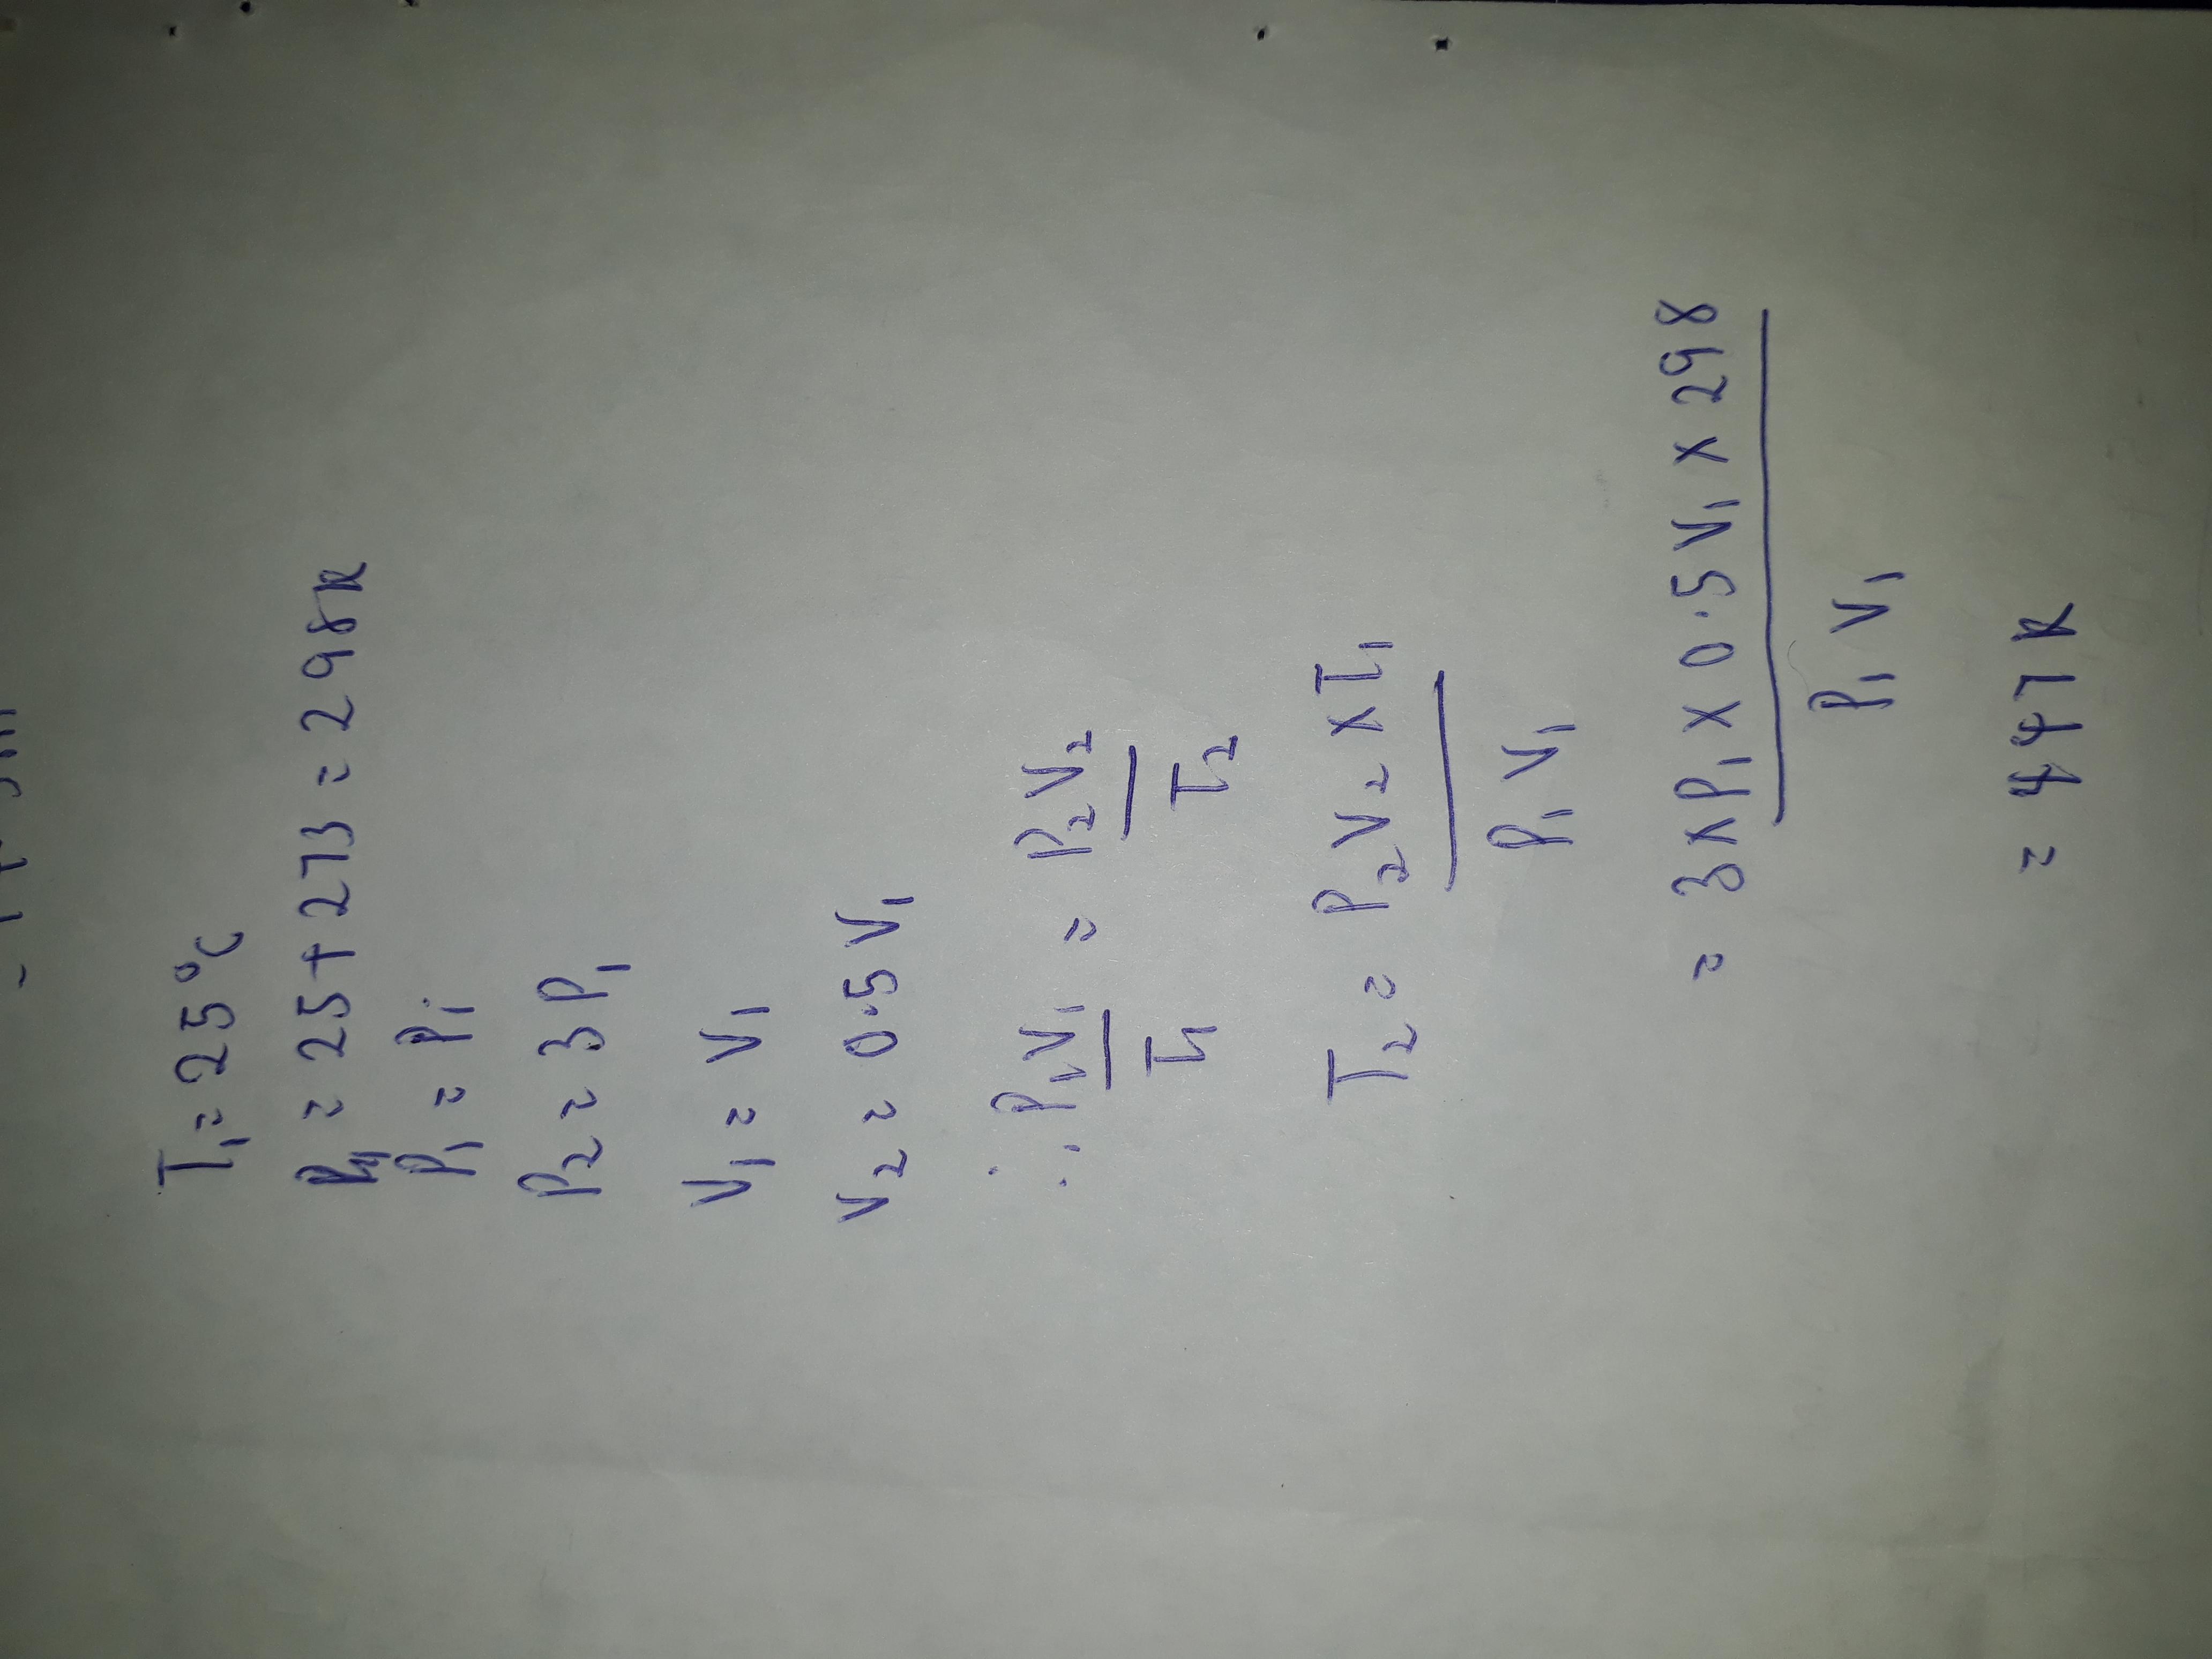 T₁ = 25°C
= 25 + 273 = 298K
P₁ = P₁
P₂ = 3P₁
V₁ = V₁
V₂ = 0.5V₁
∴ P₁V₁ = P₂V₂
T₁ T₂
T₂ = P₂V₂ x T₁
P₁V₁
= 3xP₁ x 0.5V₁ x 298
P₁V₁
= 447K